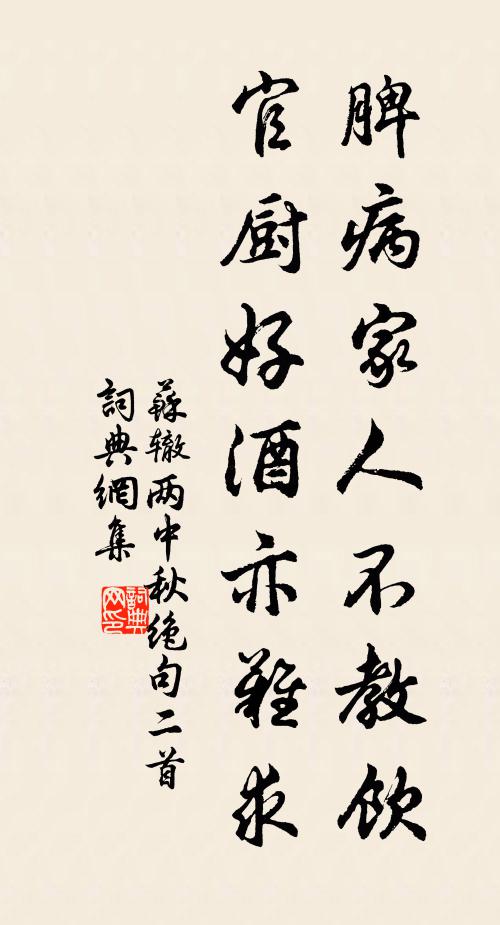 脾病家人不教飲
官厨好酒亦難求
蘇辙两中秋绝句二首
詞典網集
詞典网印